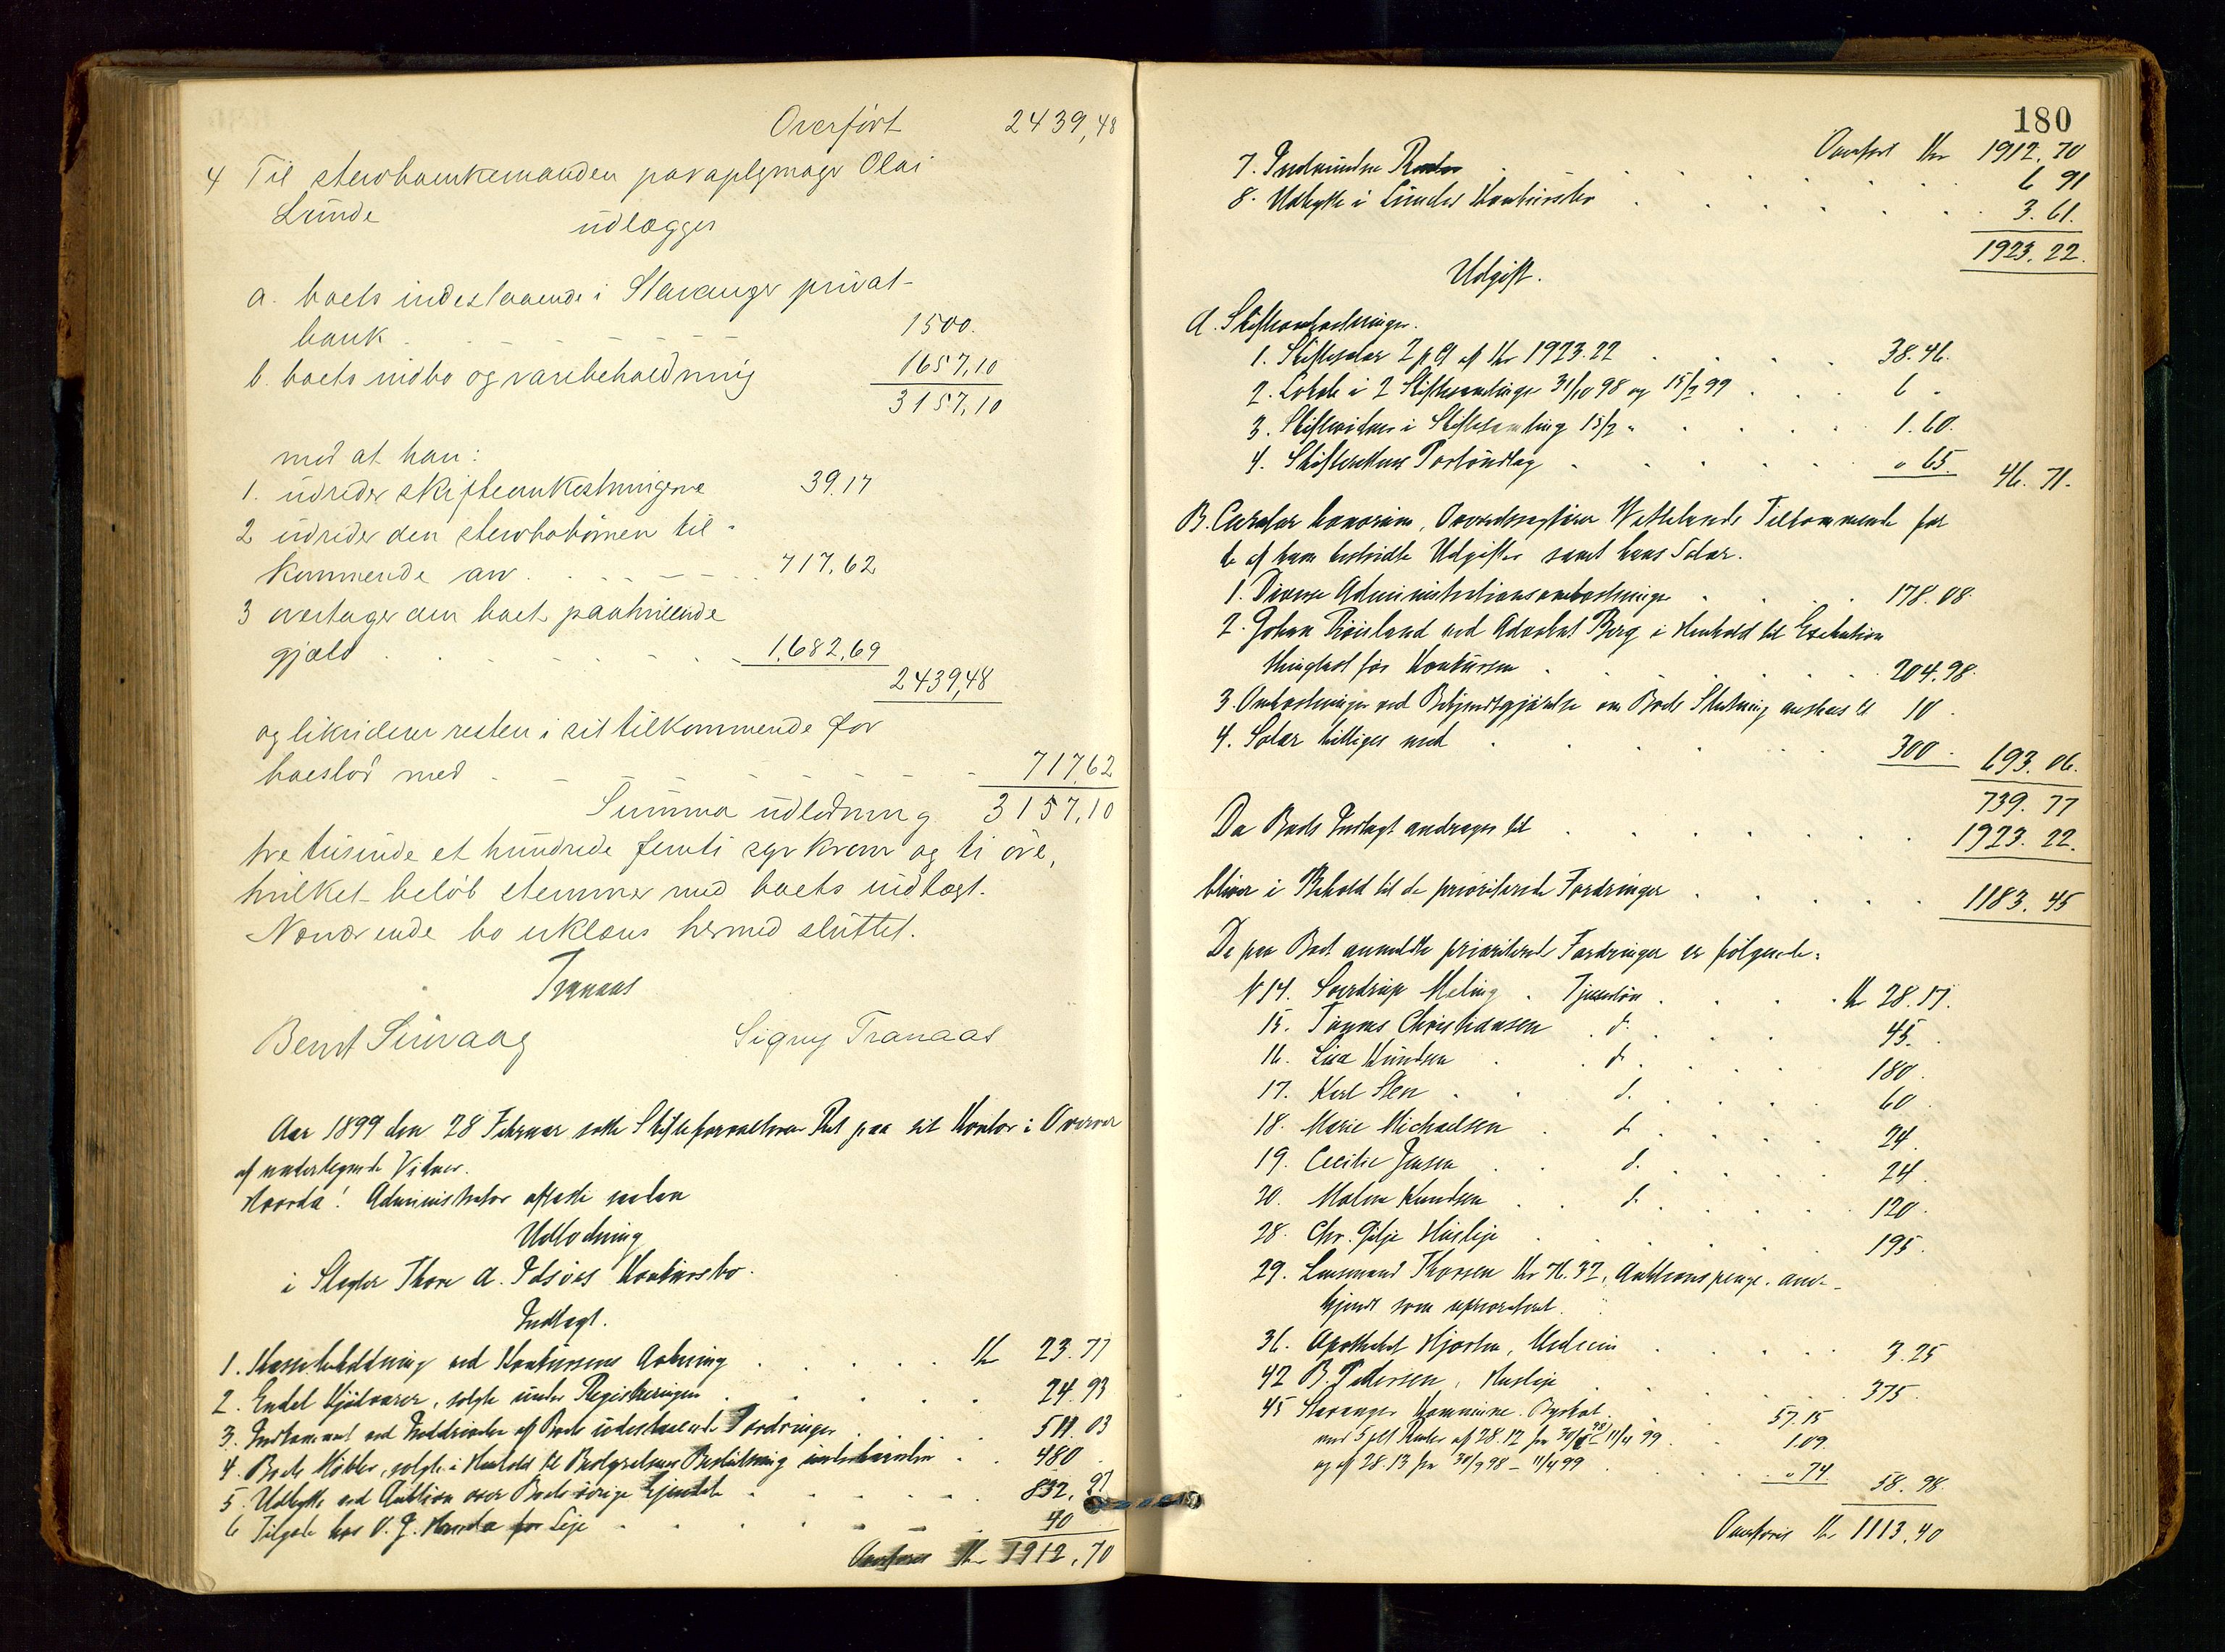 Overført 2439,48
4 Til sterbboenkemanden paraplymager Olai
Lunde udlægges
a. boets indestaaende i Stavanger privat-
bank 1500.
b. boets indbo og varebeholdning 1657,10
3157,10
mod at han:
1. udreder skifteomkostningerne 39.17
2 udreder den stervbobörnen til-
kommende arv 717,62
3 overtager den boet paahvilende
gjæld 1,682,69
2439,48
og likviderer resten i sit tilkommende for
boeslod med 717,62
Summa udlodning 3157,10
tre tusinde et hundrede femti syv kroner og ti øre,
hvilket beløb stemmer med boets indtægt.
Nærværende bo erklæres hermed sluttet.
Tranaas
Bernt Sunaag Signy Tranaas
Aar 1899 den 28 Februar satte Skifteforvalteren Ret paa sit Kontor i Overvær
af undertegnede Vidner.
Hvorda! Administrator aflagde saadan
Udlodning
i Slagter Thore A. Idsöes Konkursbo.
Indtægt.
1. Kassebeholdning ved Konkursens Aabning Kr 23.77
2. Endel Kjödvarer, solgte under Registreringen 24.93
3. Indkommet ved Inddrivelse af Boets udestaaende Fordringer 511.03
4. Boets Möbler, solgte i Henhold til Bestyrelsens Beslutning underhaanden 480
5. Udbytte ved Auktion over Boets övrige Eiendele 832,97
6 Tilgode hos O. J. for Leje 40
Overføres Kr 1912,70
180
Overfört Kr 1912.70
7. Indvundne Renter 6 91
8. Udbytte i Lundes Konkursbo 3.61.
1923.22.
Udgift.
A. Skifteomkostninger.
1. Skiftesalær 2 p Ct af Kr 1923.22 38.46.
2. Lokale i 2 Skiftesamlinger 31/10 98 og 15/2 99 6 .
3. Skiftevidner i Skiftesamling 15/2 " 1.60.
4. Skifterettens Portoudlæg " 65. 46.71.
B. Curator bonorum, Overretssagförer Wettelands Tilkommende for
de af ham bestridte Udgifter samt hans Salær.
1. Diverse Administrationsomkostninger 178.08.
2. Johan Röisland ved Advokat Berg i Henhold til Exekution
thinglæst för Konkursen 204.98.
3. Omkostninger ved Bekjendtgjörelse om Boets Slutning anslaaes til 10 .
4. Salær billiges med 300 . 693.06.
739.77
Da Boets Indtægt andrager til 1923.22.
bliver i Behold til de prioriterede Fordringer 1183.45
De paa Boet anmeldte prioriterede Fordringer er fölgende:
N 14. Sverdrup Meling . Tjenestelön Kr 28.17.
15. Tomas Christiansen . do. 45.
16. Lisa Knudsen . do. 180.
17. Karl Sten . do. 60.
18. Marie Michaelsen . do. 24.
19. Cecilie Jensen do. 24.
20. Malene Knudsen do. 120.
28. Chr. Gilje Husleje 195.
29. Lensmand Thorsen Kr 76.37, Auktionspenge. aner-
kjendt som uprioriteret.
36. Apotheket Hjorten, Medicin 3.25
42 B. Pedersen, Husleje 375.
45 Stavanger Kommune. Byskat 57.15
med 5 pCt Renter af 28.12 fra 30/6 98 - 11/4 99 1.09.
og af 28.13 fra 30/9 98 - 11/4 99 " 74 58.98.
Overföres Kr 1113,40